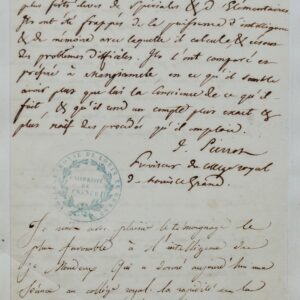 plus forts élèves de spéciales & d'Elémentaires
Ils ont été frappés de la puissance d'intelligence
& de mémoire avec laquelle il calcule, & résout
des problèmes difficiles. Ils l'ont comparé et
préféré à mangiamele en ce qu'il semble
avoir plus que lui la conscience de ce qu'il
fait, & qu'il rend un compte plus exact &
plus net des procédés qu'il emploie.
J. Pierrot
Proviseur du collège royal
de Louis le Grand.
UNIVERSITÉ
DE
FRANCE
Je rends avec plaisir le témoignage le
plus favorable à l'intelligence du
je Mondeux. Qui a donné aujourd'hui une
séance au collège royal. la rapidité